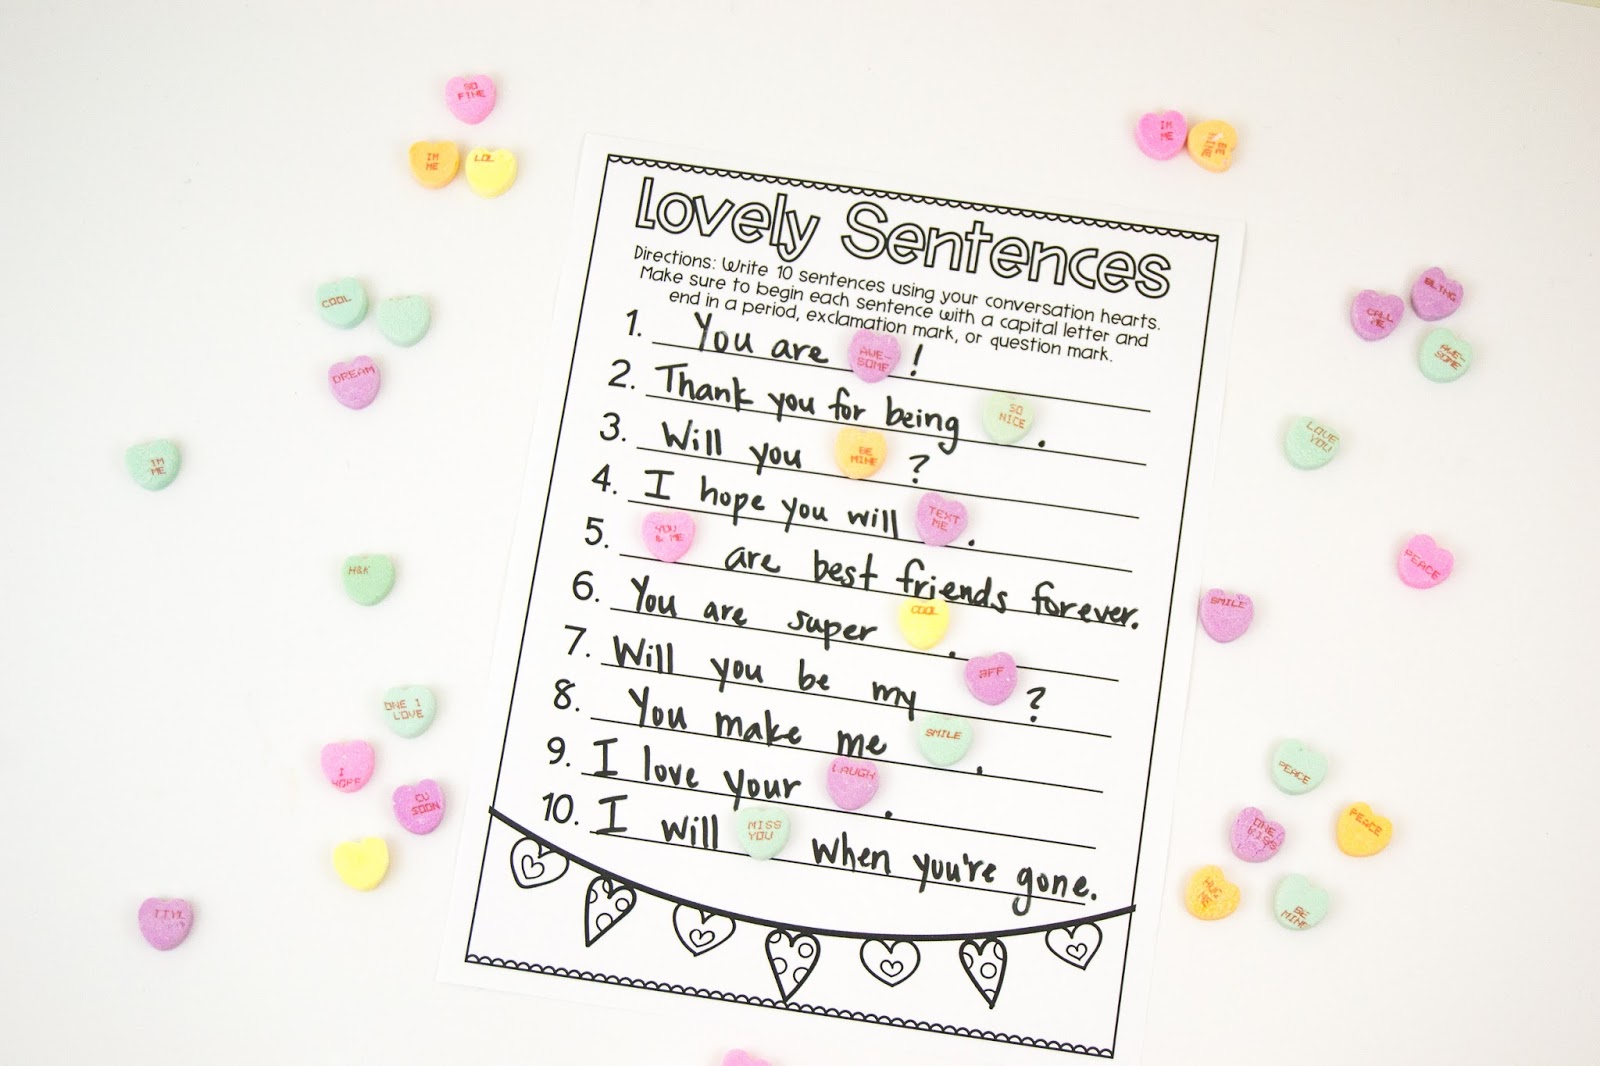 Lovely Sentences
Directions: Write 10 sentences using your conversation hearts.
Make sure to begin each sentence with a capital letter and
end in a period, exclamation mark, or question mark.
1. You are AWE-SOME !
2. Thank you for being SO NICE .
3. Will you BE MINE ?
4. I hope you will TEXT ME .
5. YOU & ME are best friends forever.
6. You are super COOL .
7. Will you be my BFF ?
8. You make me SMILE .
9. I love your LAUGH .
10. I will MISS YOU when you're gone.
SO
FINE
IM
ME
LOL
COOL
DREAM
IM
ME
H&K
ONE I
LOVE
I
HOPE
CU
SOON
TTYL
IM
ME
BE
MINE
BLING
CALL
ME
AWE-
SOME
LOVE
YOU
PEACE
SMILE
PEACE
ONE
KISS
PEACE
HUG
ME
BE
MINE